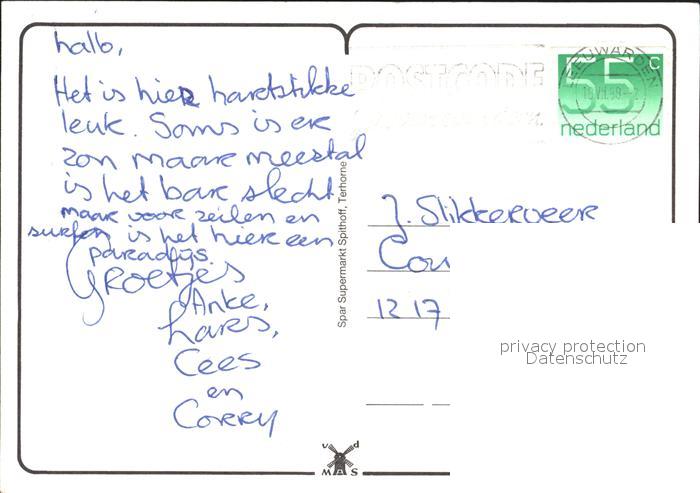 hallo,
Het is hier hartstikke
leuk. Soms is er
zon maar meestal
is het bar slecht.
maar voor zeilen en
surfen is het hier een
paradijs.
Groetjes
Anke,
Lares,
Cees
en
Corry
Spar Supermarkt Spithoff, Terhorne
POSTCODE
LEEUWARDEN
55 c
nederland
J. Slikkerveer
Cou
1217
privacy protection
Datenschutz
v d
MAS